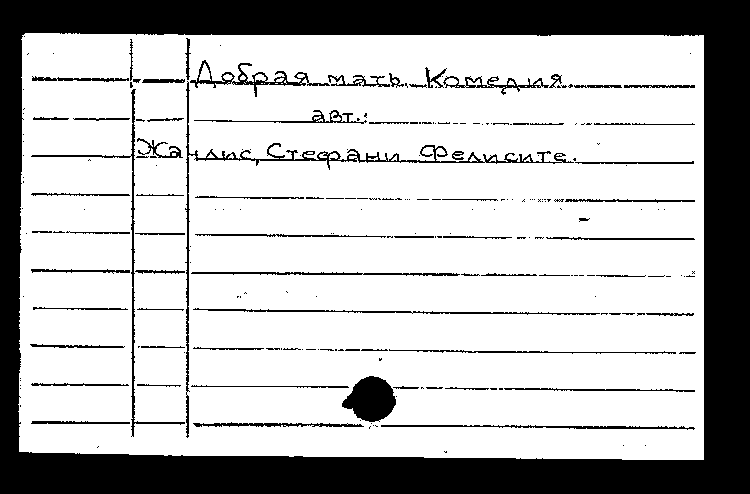 Добрая мать. Комедия.
авт.:
Жанлис, Стефани Фелисите.